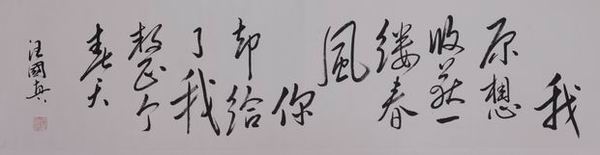 我
原想
收获一
缕春
風
你
却给
了我
整个
春天
汪國真